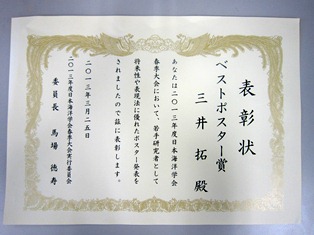 表彰状
ベストポスター賞
三井 拓 殿
あなたは二〇一三年度日本海洋学会
春季大会において、若手研究者として
将来性や表現法に優れたポスター発表を
されましたので茲に表彰します。
二〇一三年三月二五日
二〇一三年度日本海洋学会春季大会実行委員会
委員長 馬場 徳寿